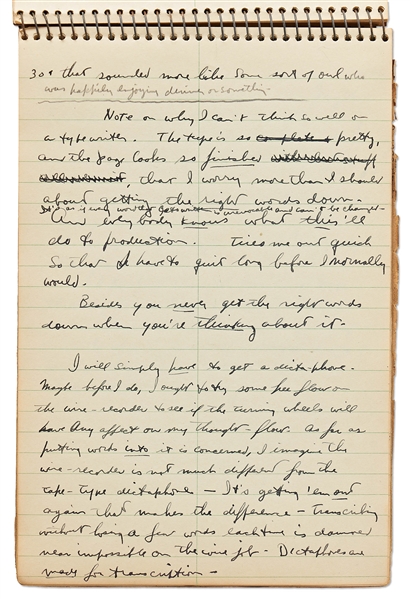 30. that sounded more like some sort of owl who
was happily enjoying dinner or something.
Note on why I can't think so well on
a typewriter. The type is so complete & pretty,
and the page looks so finished
, that I worry more than I should
about getting the right words down.
It's as if every word is and can't be changed.
And everybody knows what this'll
do to production. Tires me out quick
so that I have to quit long before I normally
would.
Besides you never get the right words
down when you're thinking about it.
I will simply have to get a dictaphone.
Maybe before I do, I ought to try some free flow on
the wire-recorder to see if the turning wheels will
have any affect on my thought-flow. As far as
putting words into it is concerned, I imagine the
wire-recorder is not much different from the
tape-type dictaphones — It's getting 'em out
again that makes the difference — transcribing
without losing a few words each time is damned
near impossible on the wire job. Dictaphones are
made for transcription —